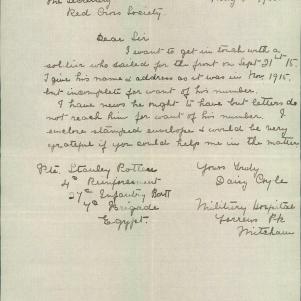 The Secretary
Red Cross Society.
Dear Sir
I want to get in touch with a
soldier who sailed for the front on Sept. 21st 15.
I give his name & address as it was in Nov. 1915,
but incomplete for want of his number.
I have news he ought to have but letters do
not reach him for want of his number. I
enclose stamped envelope & would be very
grateful if you could help me in the matter
Pte. Stanley
4th Reinforcement
27th Infantry Batt
7th Brigade
Egypt.
Yours truly
Daisy Coyle
Military Hospital
Torrens Pk
Mitcham